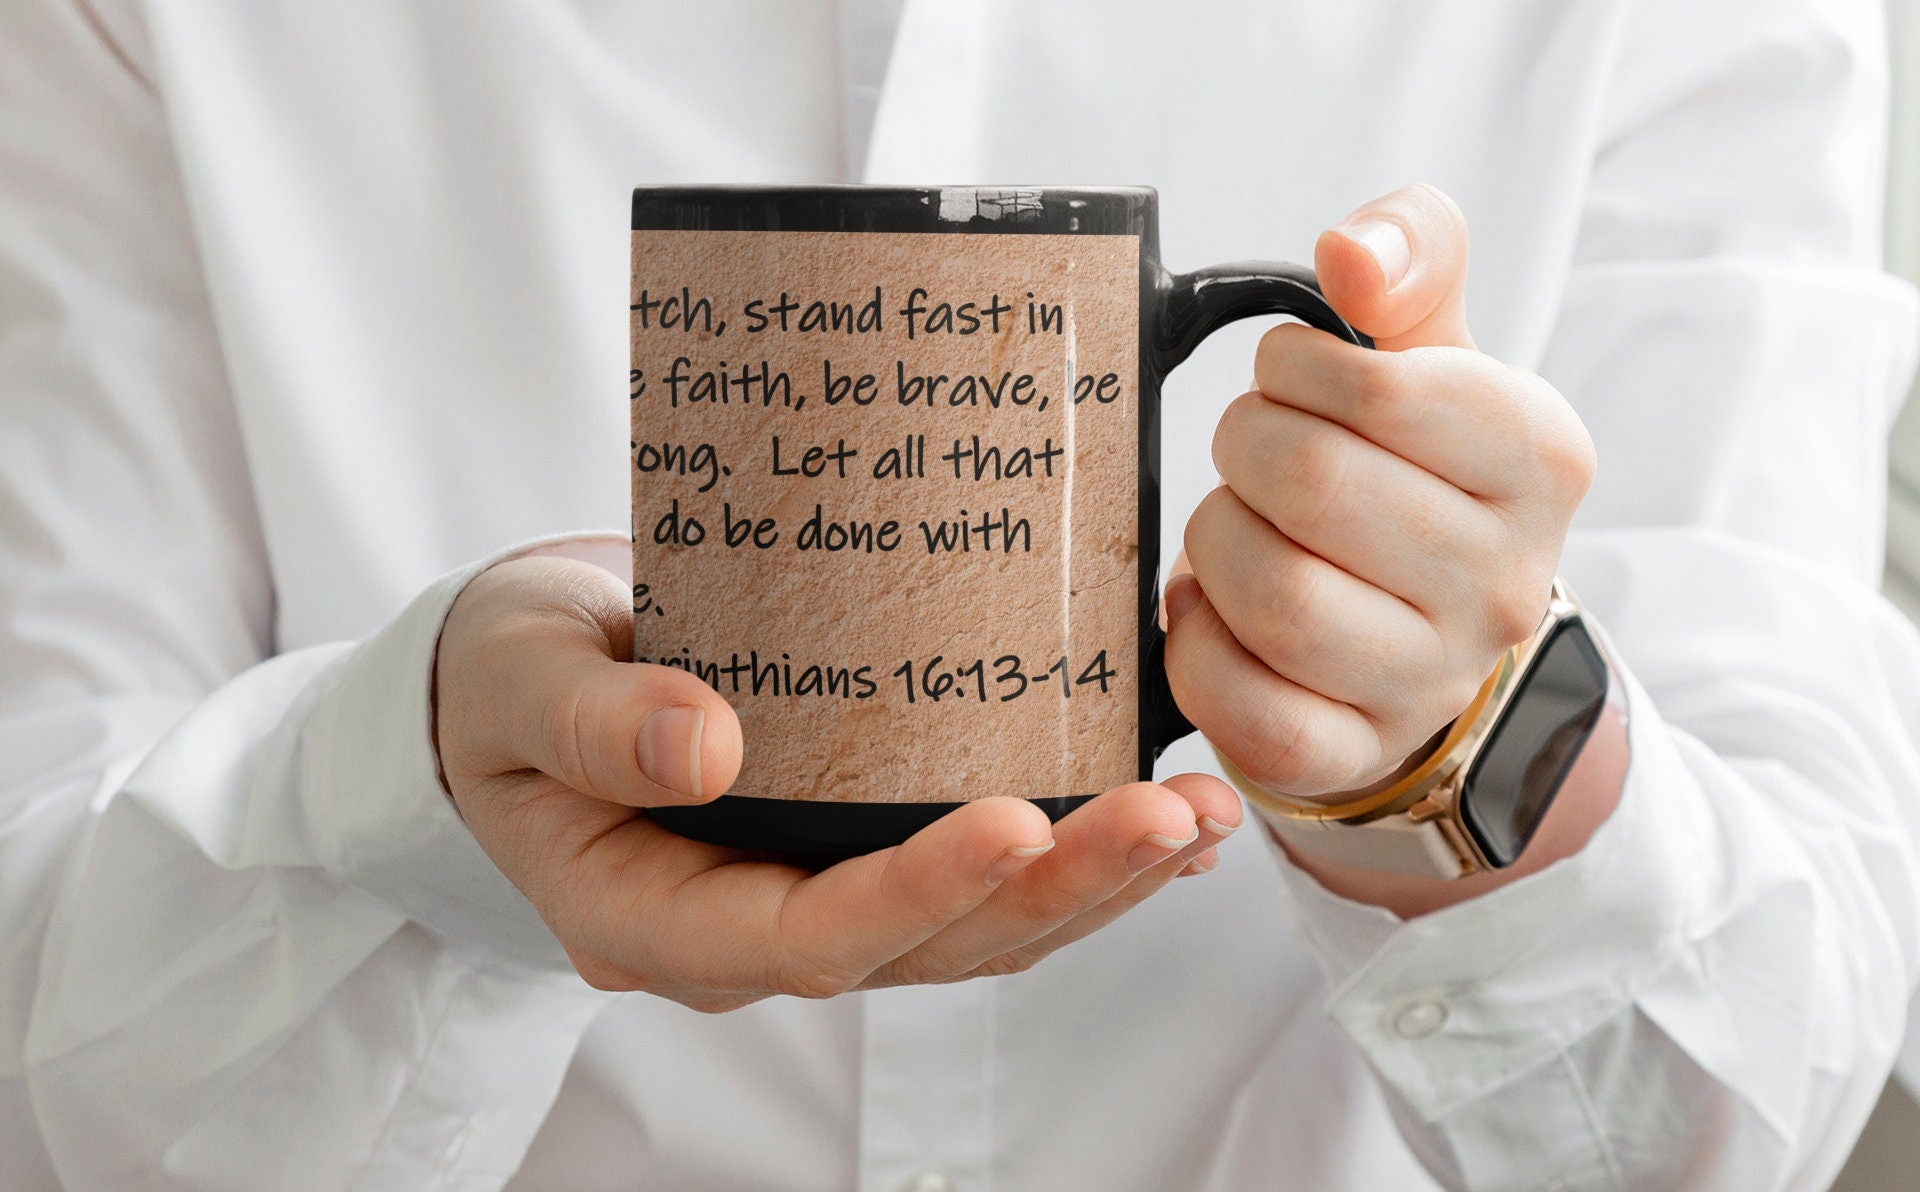 tch, stand fast in
e faith, be brave, be
rong. Let all that
do be done with
e.
orinthians 16:13-14